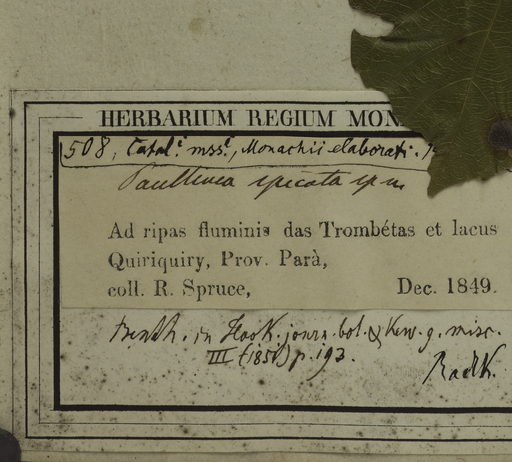 HERBARIUM REGIUM MON
508, Catal. mss., Monachii elaborati.
Paullinia spicata sp n
Ad ripas fluminis das Trombétas et lacus
Quiriquiry, Prov. Parà,
coll. R. Spruce, Dec. 1849.
Benth. in Hook. journ. bot. & Kew. g. misc.
III (1851) p. 193.
Radlk.